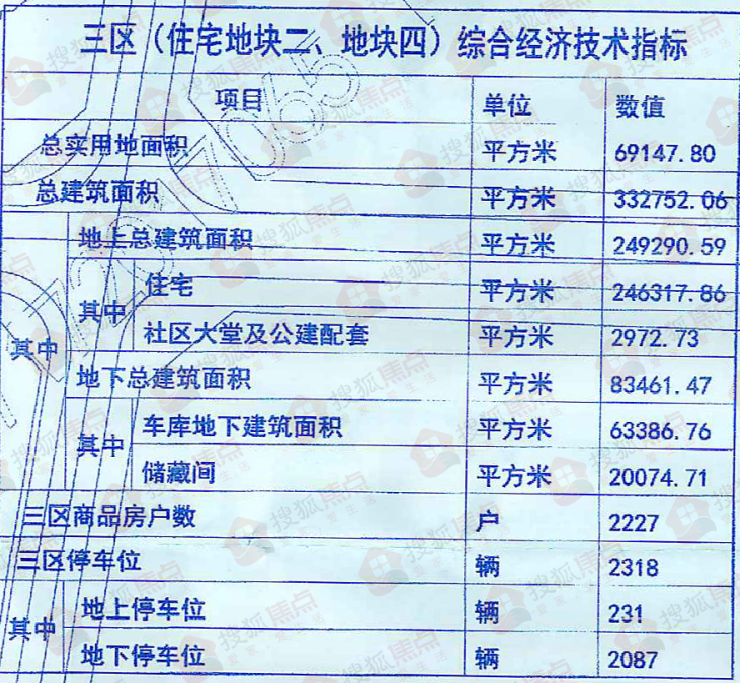 三区（住宅地块二、地块四）综合经济技术指标
项目 单位 数值
总实用地面积 平方米 69147.80
总建筑面积 平方米 332752.06
地上总建筑面积 平方米 249290.59
住宅 平方米 246317.86
其中
社区大堂及公建配套 平方米 2972.73
其中
地下总建筑面积 平方米 83461.47
车库地下建筑面积 平方米 63386.76
其中
储藏间 平方米 20074.71
三区商品房户数 户 2227
三区停车位 辆 2318
地上停车位 辆 231
其中
地下停车位 辆 2087
搜狐焦点